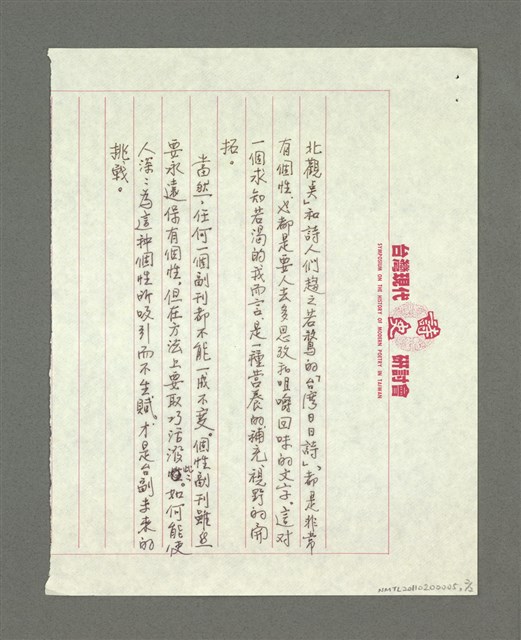 台灣現代詩史研討會
SYMPOSIUM ON THE HISTORY OF MODERN POETRY IN TAIWAN
北觀点」和詩人們趨之若鶩的「台灣日日詩」、都是非常
有個性也都是要人去多思考和咀嚼回味的文字、這对
一個求知若渴的我而言、是一種营養的補充、視野的開
拓。
當然，任何一個副刊都不能一成不变。個性副刊雖然
要永遠保有個性，但在方法上要取巧活潑些，如何能使
人深深為這种個性所吸引而不生膩，才是台副未來的
挑戰。
NMTL20110200005